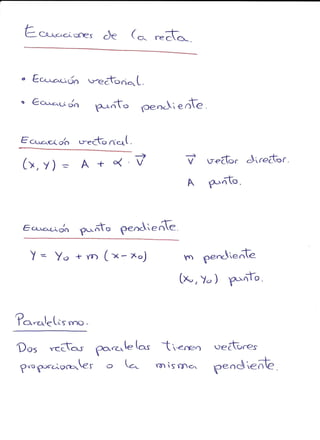 Ecuaciones de la recta.
• Ecuación vectorial.
• Ecuación punto pendiente.
Ecuación vectorial.
(x, y) = A + α · V⃗
V⃗ vector director.
A punto.
Ecuación punto pendiente.
y = y₀ + m (x - x₀)
m pendiente
(x₀, y₀) punto.
Paralelismo.
Dos rectas paralelas tienen vectores
proporcionales o la misma pendiente.